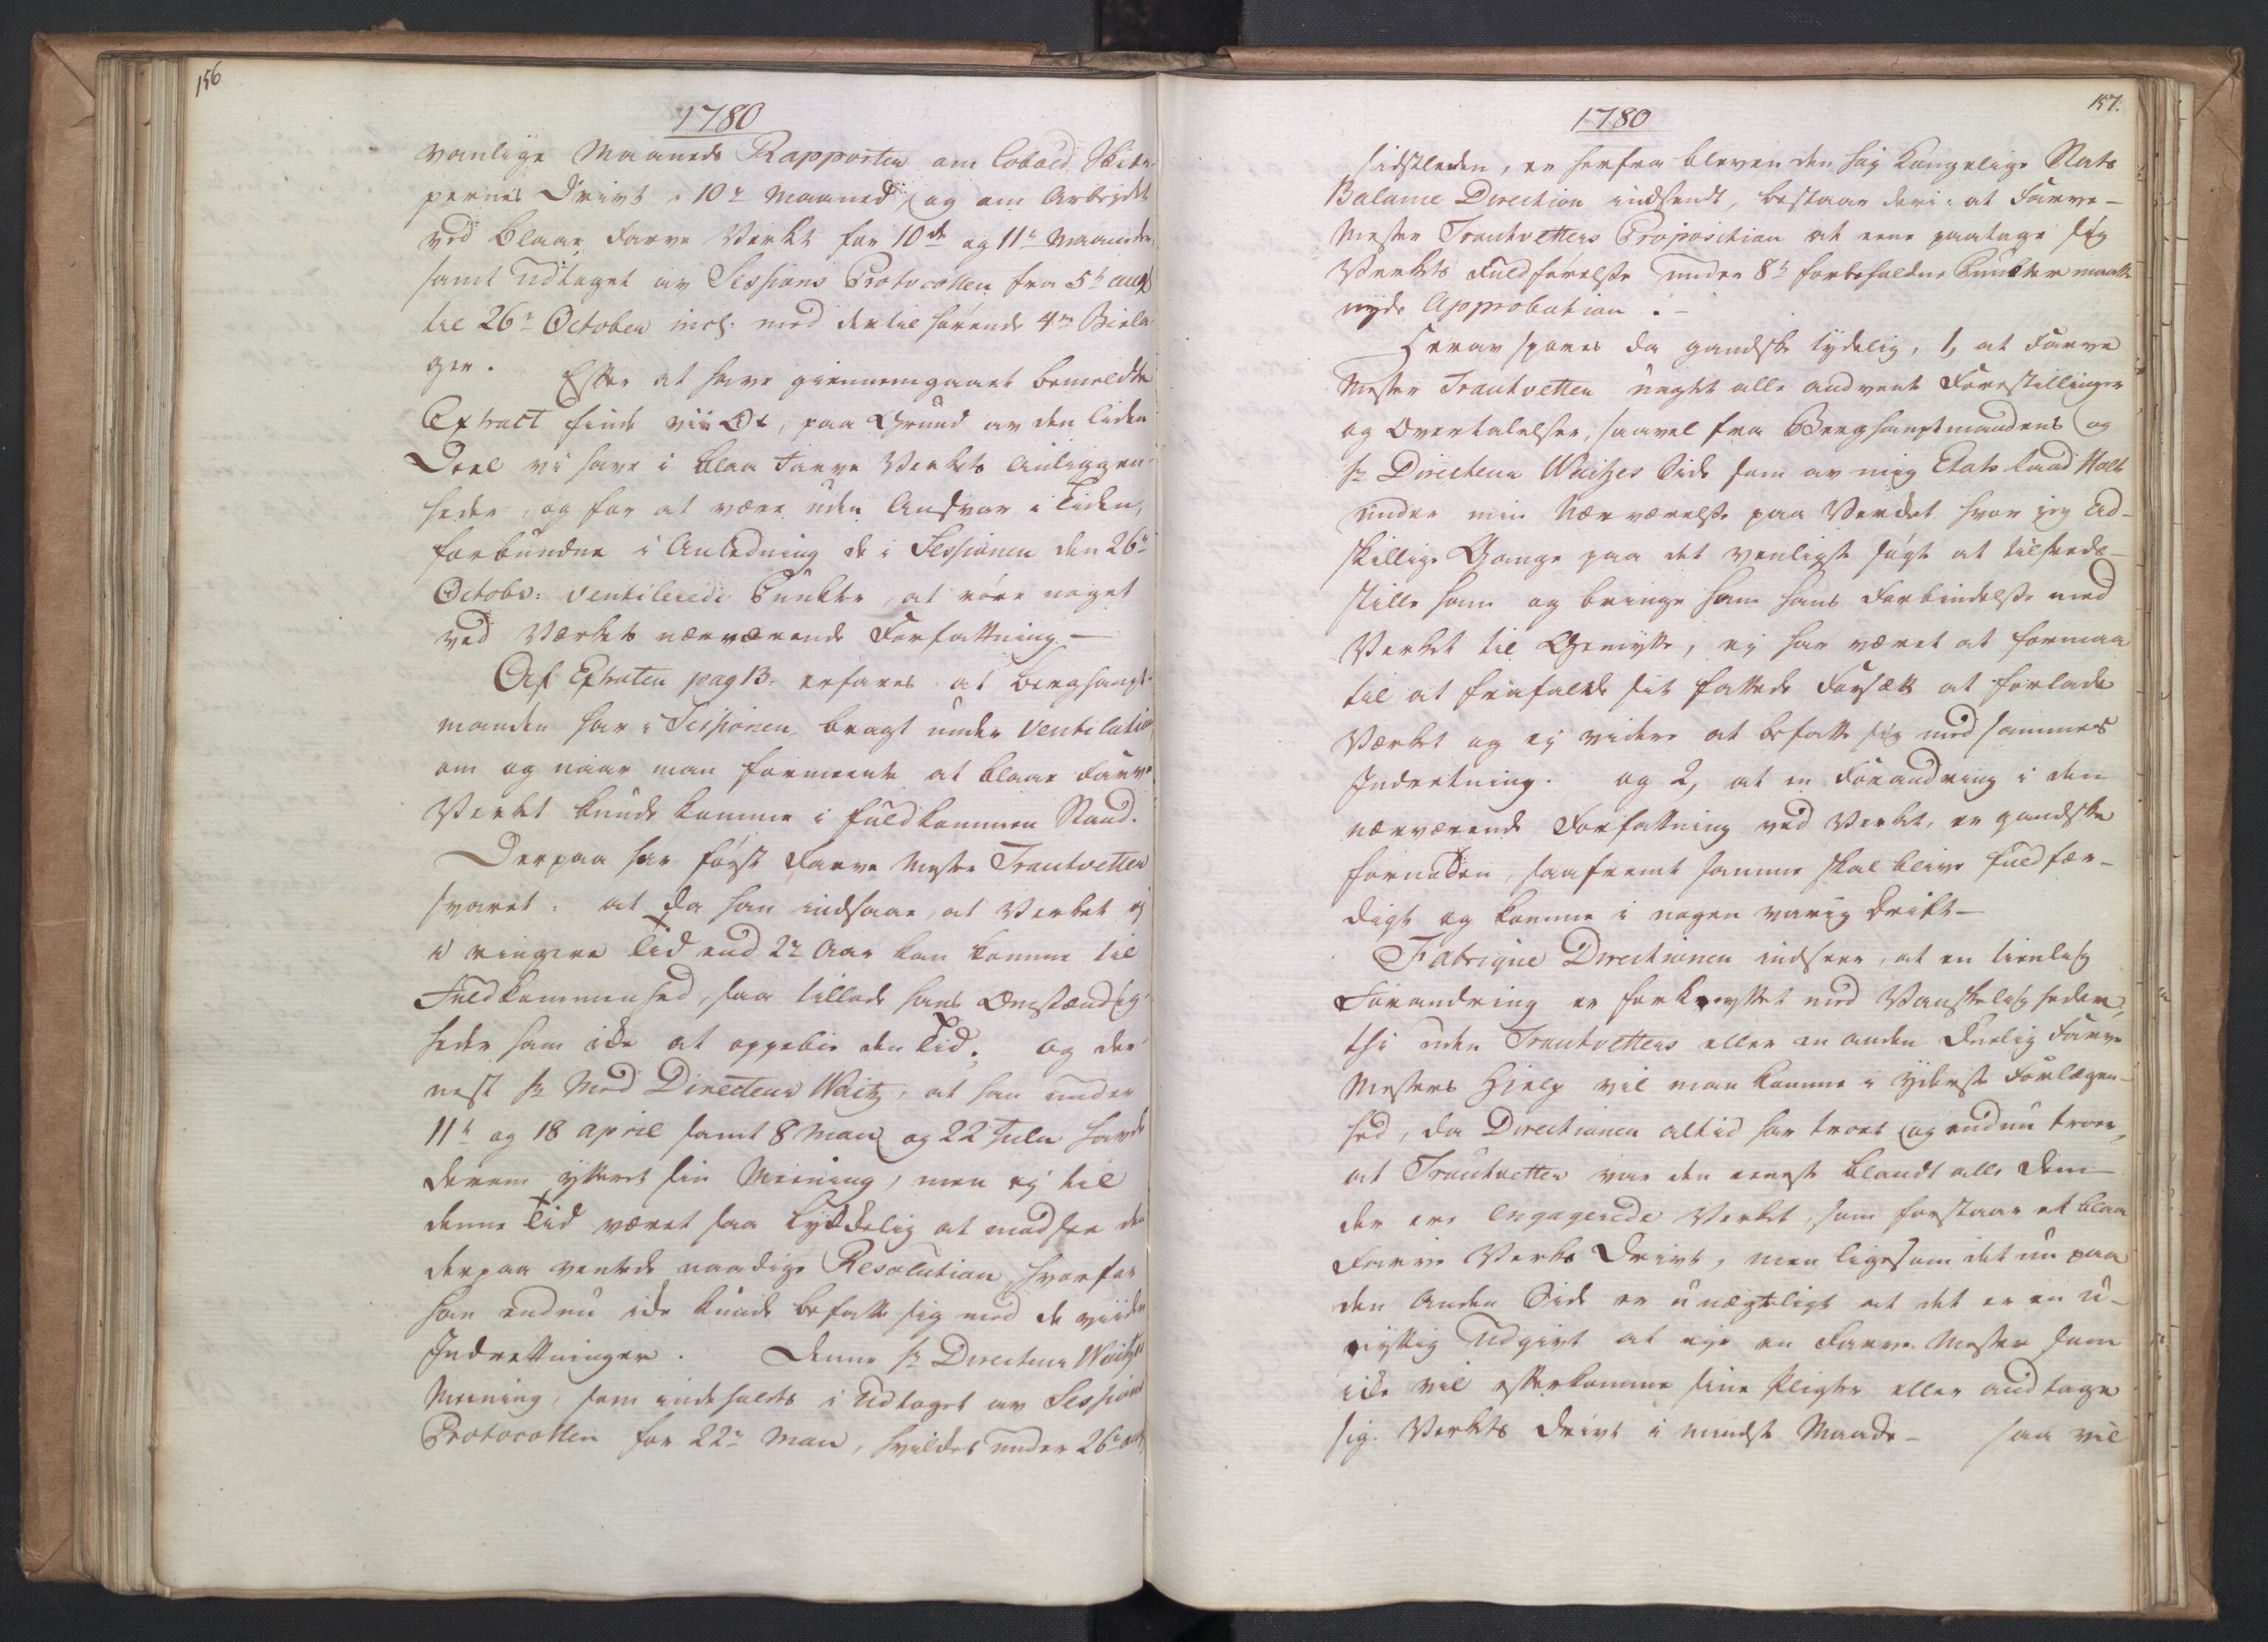 156
1780
vanlige Maaneds Rapporter om Cobold Skier-
pernes Drivt i 10de Maaned, og om Arbejdet
ved Blaae Farve Verket for 10de og 11te Maaneder,
samt Udtoget av Sessions Protocollen fra 5te aug
til 26de October incl. med dertil hørende 4re Biela-
ger. Efter at have giennemgaaet bemeldte
Extract finde vii Os, paa Grund av den liden
Deel vi have i Blaa Farve Verkets Anliggen-
heder, og for at være uden Ansvar i Tiden,
forbundne i Anledning de i Sessionen den 26de
Octobr: ventilerede Puncter, at røre noget
ved Værkets nærværende Forfattning. —
Af Extracten pag 13. erfares at Berghaupt-
manden har i Sessionen bragt under Ventilation,
om og naar man formeente at Blaae Farve
Verket kunde komme i fuldkommen Stand.
Derpaa har først Farve Mester Trautvetter
svaret: at da han indsaae, at Verket ej
i ringere Tid end 2de Aar kan komme til
Fuldkommenhed, saa tillade hans Omstændig-
heder ham icke at oppebie den Tid. Og der-
nest Hr Med Directeur Waitz, at han under
11te og 18 april samt 8 Maii og 22 Julii havde
derom yttret sin Meening, men ej til
denne Tid været saa lykkelig at modtee den
derpaa ventede naadige Resolution, hvorfor
han endnu icke kunde befatte sig med de viidere
Indrettninger. Denne Hr Directeur Waitzes
Meening, som indeholdes i Udtoget av Sessions
Protocollen for 22de Maii, hvilket under 26de aug
157.
1780
sidstleden, er herfra bleven den høj Kongelige Stats
Balance Direction indsendt, bestaar deri: at Farve-
Mester Trautvetters Proposition at eene paatage sig
Verkets Fuldførelse under 8te forbeholdne Puncter maatte
nyde Approbation. —
Herav spores da gandske tydelig, 1, at Farve
Mester Trautvetter uagtet alle anvendt Forestillinger
og Overtalelser, saavel fra Berghauptmandens og
Hr Directeur Waitzes Side som av mig Etats Raad Holt
under min Nærværelse paa Verket hvor jeg ad-
skillige Gange paa det venligste søgt at tilfreds-
stille ham og bringe ham hans Forbindelse med
Verket til Gemytte, ej har været at formaa
til at frafalde sit fattede Forsætt at forlade
Værket og ej videre at befatte sig med sammes
Indretning. og 2, at en Forandring i den
nærværende Forfattning ved Verket, er gandske
fornøden, saafremt samme skal blive fuldfær-
digt og komme i nogen varig Drift —
Fabrique Directionen indseer, at en tienlig
Forandring er forknyttet med Vanskeligheder,
thi uden Trautvetters eller en anden duelig Farve
Mesters Hjelp vil man komme i yderste Forlægen-
hed, da Directionen altid har troet og endnu troer,
at Trautvetter var den eeneste blandt alle dem
der ere engagerede Verket, som forstaar et Blaa
Farve Verks Drivt, men ligesom det nu paa
den anden Side er unægteligt at det er en u-
nyttig Udgivt at eje en Farve Mester som
icke vil efterkomme sine Pligter eller andtage
sig Verkets Drivt i mindste Maade — saa vil